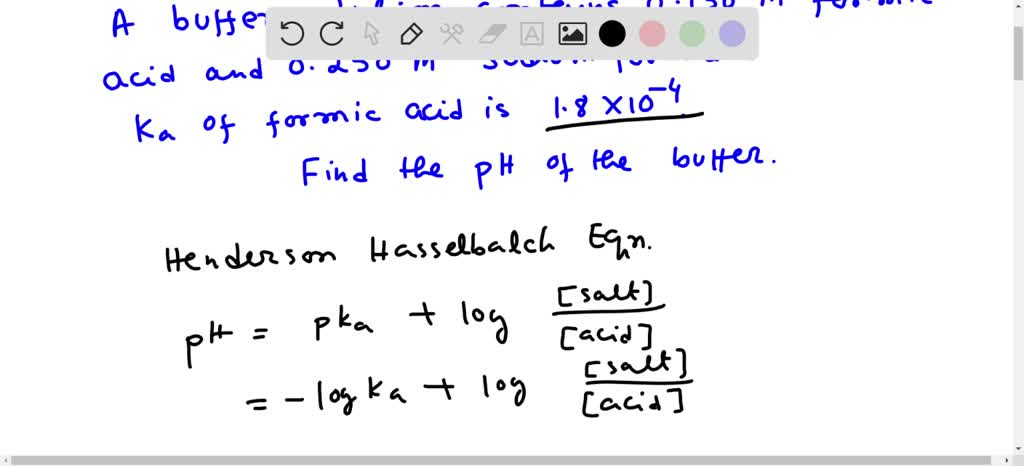 A buffer
acid and 0.250 M
Ka of formic acid is 1.8 X10⁻⁴
Find the pH of the buffer.
Henderson Hasselbalch Eqn.
pH = pKa + log [salt]/[acid]
= -log Ka + log [salt]/[acid]